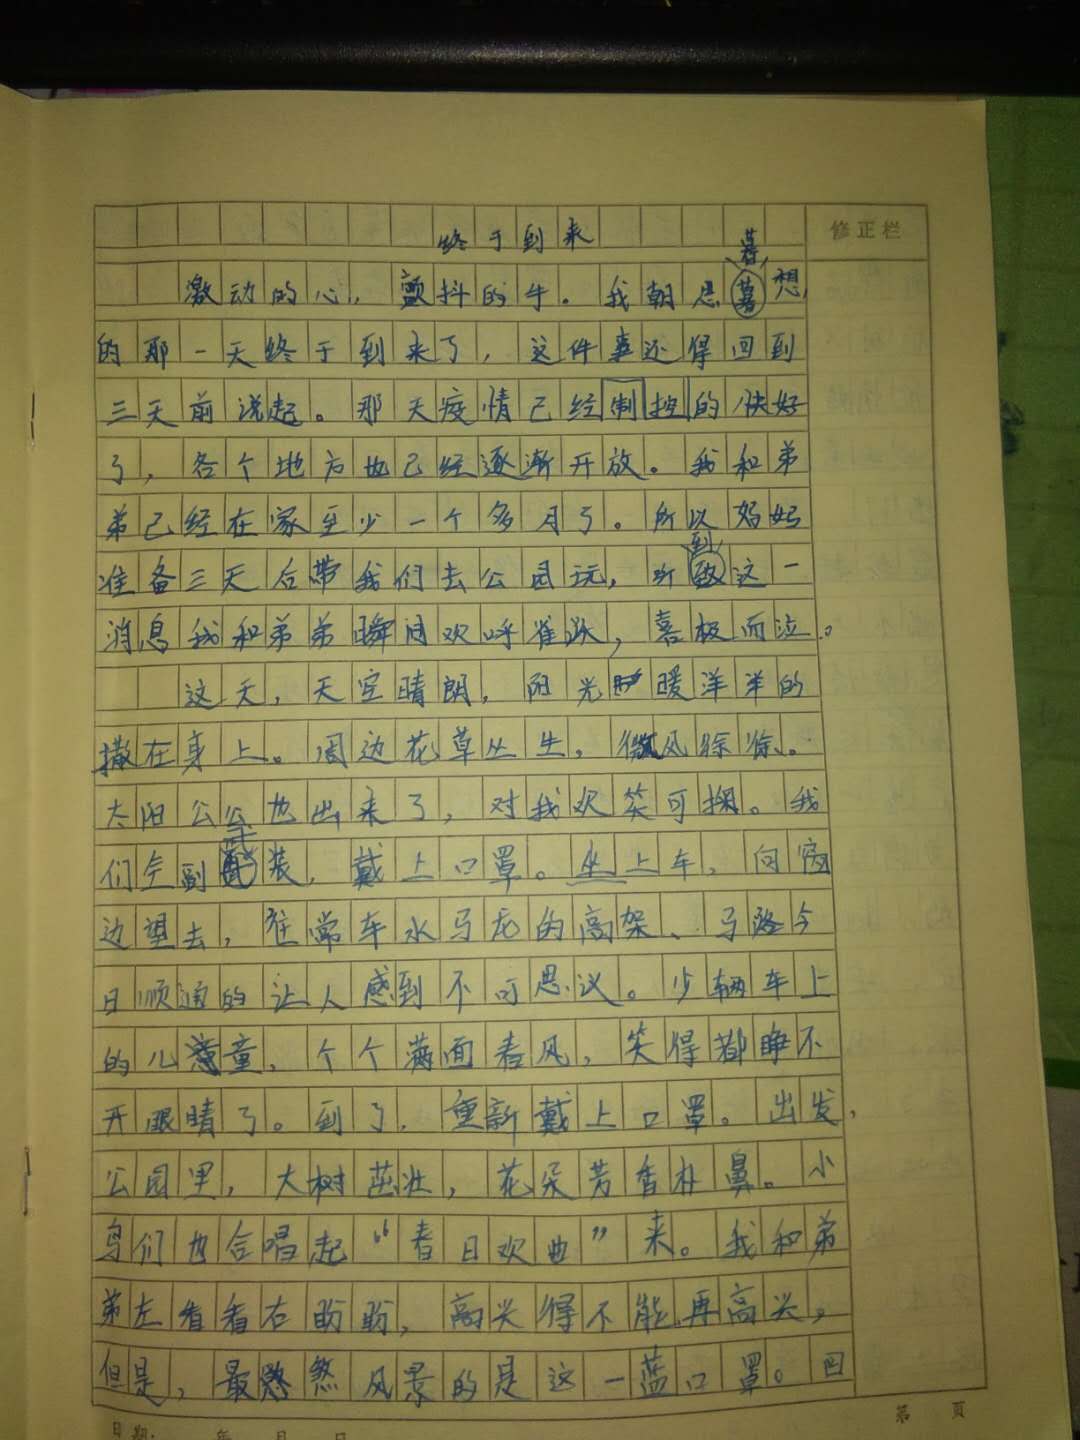 修正栏
终于到来
激动的心，颤抖的手。我朝思暮想
的那一天终于到来了，这件事还得回到
三天前说起。那天疫情已经制控的快好
了，各个地方也已经逐渐开放。我和弟
弟已经在家至少一个多月了。所以妈妈
准备三天后带我们去公园玩，听到这一
消息我和弟弟瞬间欢呼雀跃，喜极而泣。
这天，天空晴朗，阳光暖洋洋的
撒在身上。周边花草丛生，微风徐徐。
太阳公公也出来了，对我欢笑可掬。我
们全副武装，戴上口罩。坐上车，向窗
边望去，往常车水马龙的高架、马路今
日顺通的让人感到不可思议。少辆车上
的儿童，个个满面春风，笑得都睁不
开眼睛了。到了，重新戴上口罩。出发，
公园里，大树茁壮，花朵芳香朴鼻。小
鸟们也合唱起“春日欢曲”来。我和弟
弟左看看右盼盼，高兴得不能再高兴。
但是，最煞风景的是这一蓝口罩。回
第 页
日期： 年 月 日